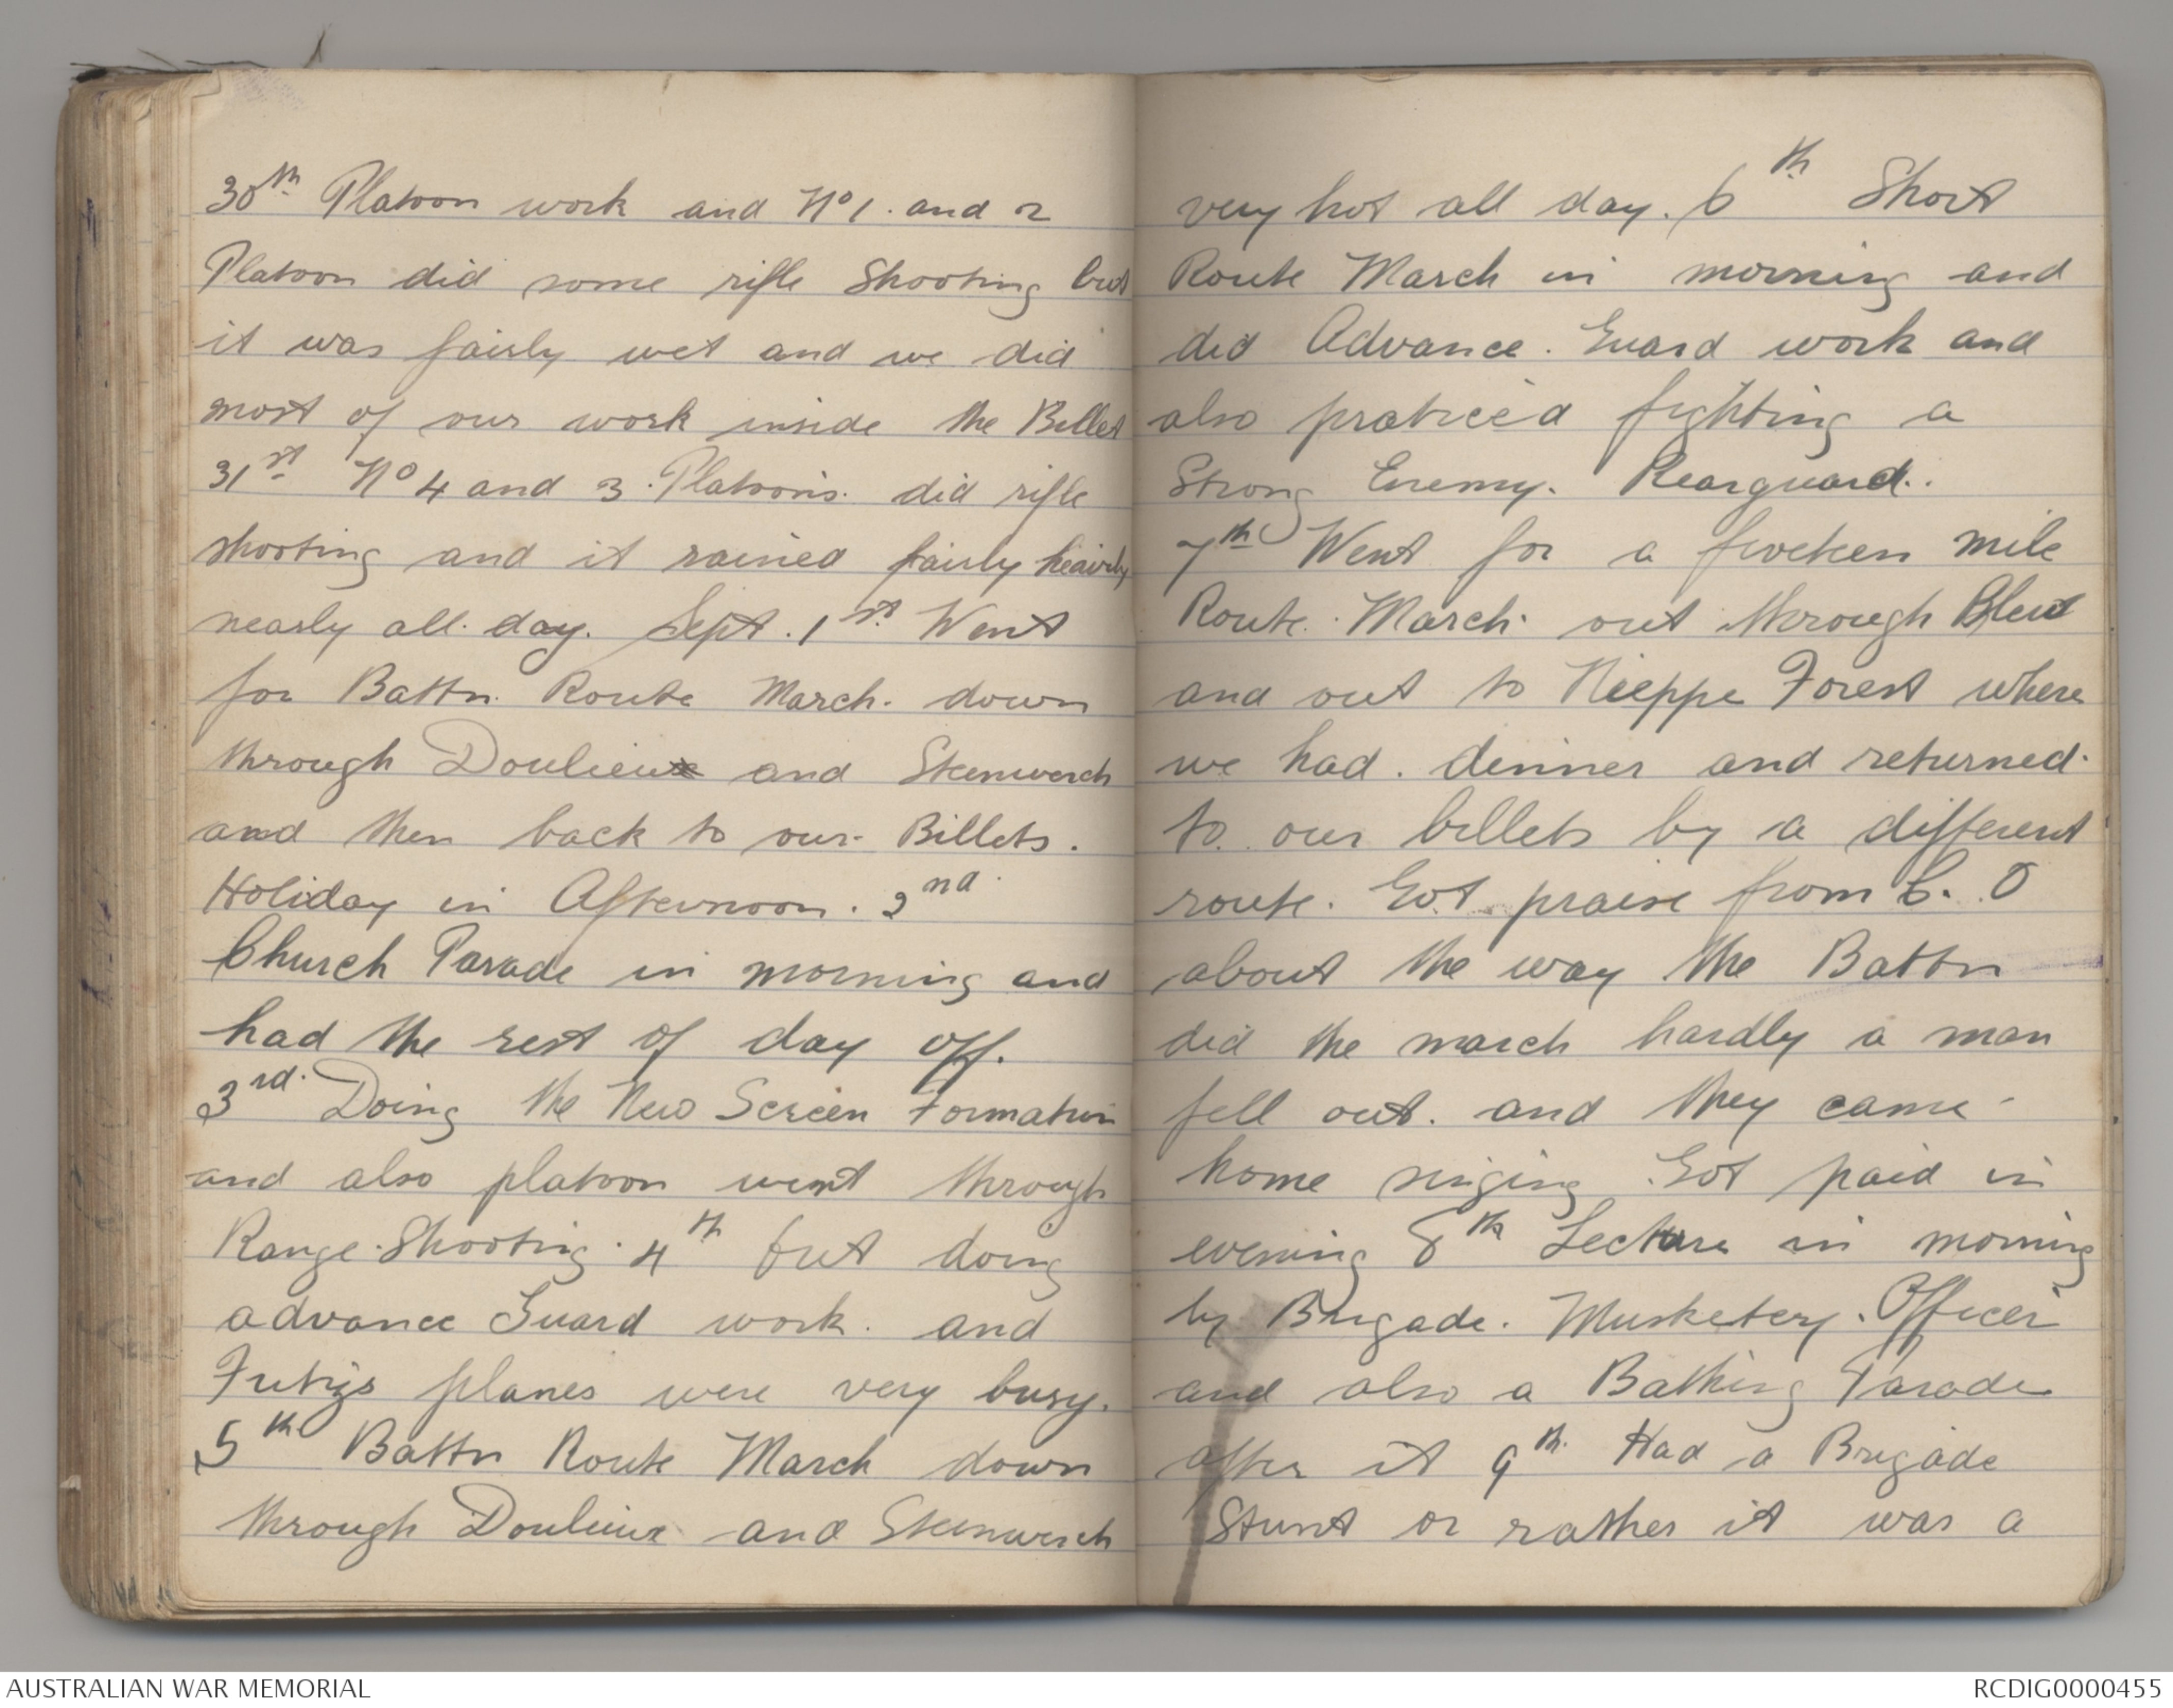 30th Platoon work and No 1. and 2
Platoon did some rifle Shooting but
it was fairly wet and we did
most of our work inside the Billet
31st No 4 and 3 Platoons. did rifle
shooting and it rained fairly heavily
nearly all day. Sept. 1st Went
for Battn Route March. down
through Doulieu and Steenwerch
and then back to our Billets.
Holiday in Afternoon. 2nd
Church Parade in morning and
had the rest of day off.
3rd. Doing the New Screen Formation
and also platoon went through
Range Shooting. 4th but doing
advance Guard work. and
planes were very busy.
5th Battn Route March down
through Doulieux and Steenwerch
very hot all day. 6th Short
Route March in morning and
did Advance. Guard work and
also praticed fighting a
Strong Enemy. Rearguard..
7th Went for a mile
Route. March. out through Bleut
and out to Nieppe Forest where
we had. dinner and returned.
to our billets by a different
route. Got praise from C. O
about the way the Battn
did the march hardly a man
fell out. and they came
home singing Got paid in
evening 8th Lecture in morning
by Brigade. Musketery. Officer
and also a Bathing Parade
after it 9th Had a Brigade
Stunt or rather it was a
AUSTRALIAN WAR MEMORIAL
RCDIG0000455